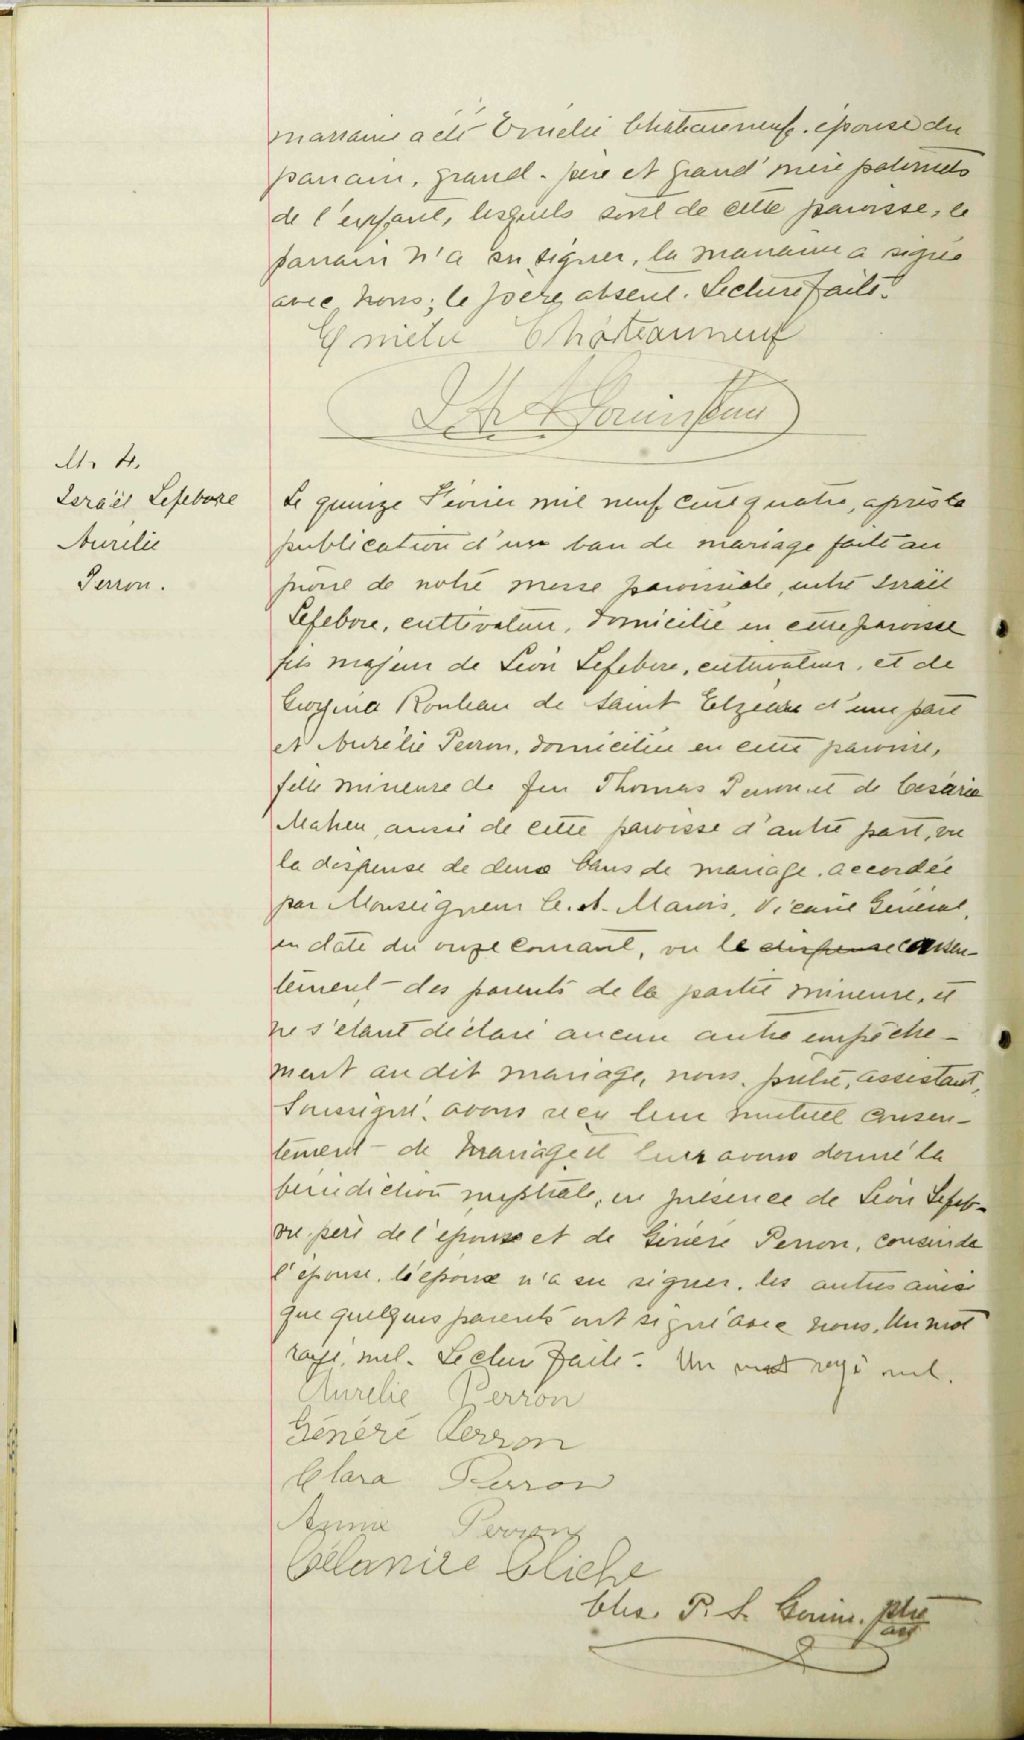 marraine a été Emélie Châteauneuf, épouse du
parrain, grand-père et grand'mère paternels
de l'enfant, lesquels sont de cette paroisse, le
parrain n'a su signer, la marraine a signé
avec nous; le père absent. Lecture faite.
Emélie Châteauneuf
Gouin Ptre
M. 4.
Israël Lefebvre
Aurélie
Perron.
Le quinze Février mil neuf cent quatre, après la
publication d'un ban de mariage faite au
prône de notre messe paroissiale, entre Israël
Lefebvre, cultivateur, domicilié en cette paroisse
fils majeur de Léon Lefebvre, cultivateur, et de
Georgina Rouleau de Saint Elzéar d'une part
et Aurélie Perron, domiciliée en cette paroisse,
fille mineure de feu Thomas Perron et de Césarie
Maheu, aussi de cette paroisse d'autre part, vu
la dispense de deux bans de mariage, accordée
par Monseigneur C. A. Marois, Vicaire Général,
en date du onze courant, vu le dispense consen-
tement des parents de la partie mineure, et
ne s'étant déclaré aucun autre empêche-
ment audit mariage, nous, prêtre, assistant,
Soussigné, avons reçu leur mutuel consen-
tement de mariage et leur avons donné la
bénédiction nuptiale, en présence de Léon Lefeb-
vre père de l'époux et de Généré Perron, cousin de
l'épouse. L'époux n'a su signer, les autres ainsi
que quelques parents ont signé avec nous. Un mot
rayé, nul. Lecture faite. Un mot rayé nul.
Aurelie Perron
Généré Perron
Clara Perron
Annie Perron
Célanire Cliche
Chs. P. S. Gouin. ptre
ass